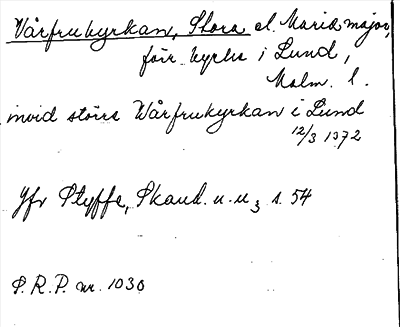 Vårfrukyrkan, Stora el. Maria major,
förr kyrka i Lund,
Malm. l.
invid större Vårfrukyrkan i Lund
12/3 1372
Jfr Styffe, Skand. u. u3 s. 54
S.R.P. nr. 1030